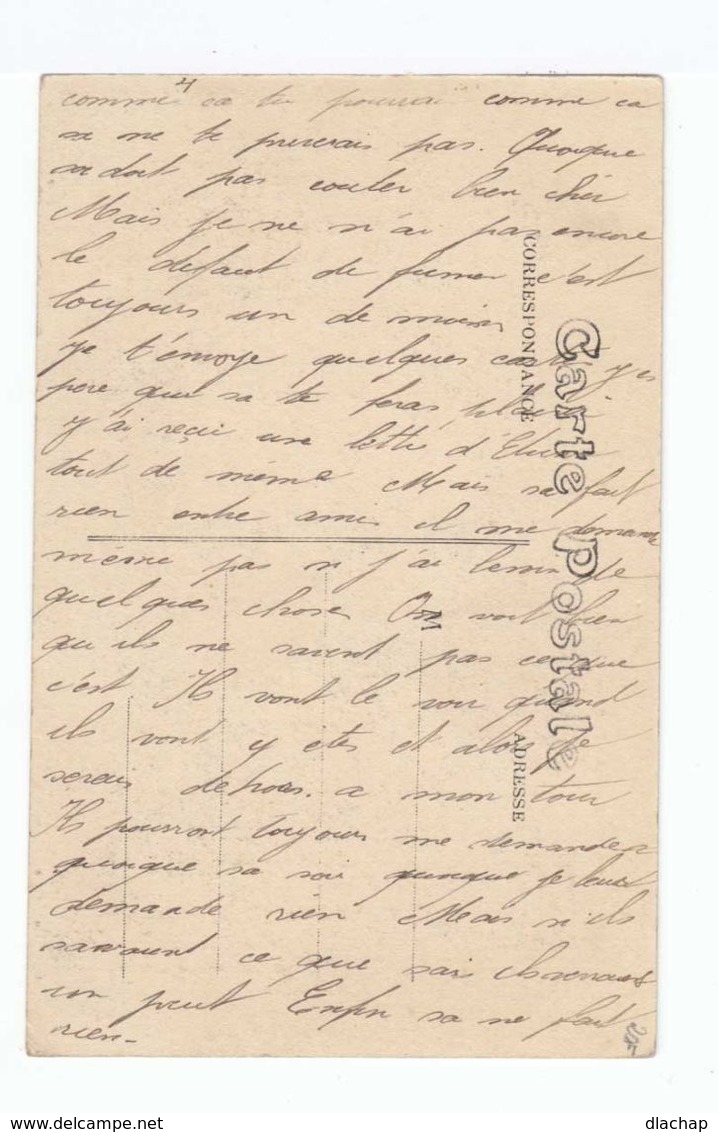 4
comme ca tu pourrai comme ca
sa ne te priverais pas. Quoique
sa doit pas couter bien cher
Mais je ne n'ai pas encore
le defaut de fumer c'est
toujours un de moins
Je t'envoye quelques cartes j'es
pere que sa te feras plaisir
j'ai reçu une lettre d'
tout de même Mais sa fait
rien entre amis il me demande
même pas si j'ai besoin de
quelques chose On voit bien
qu'ils ne savent pas ce que
c'est Ils vont le voir quand
ils vont y etes et alors je
serais dehors. a mon tour
Ils pourront toujours me demander
quoique sa soi quoique je leurs
demande rien Mais s'ils
savaient ce que sais
on peut Enfin sa ne fait
rien-
CORRESPONDANCE
Carte Postale
M
ADRESSE
delcampe.net
dlachap